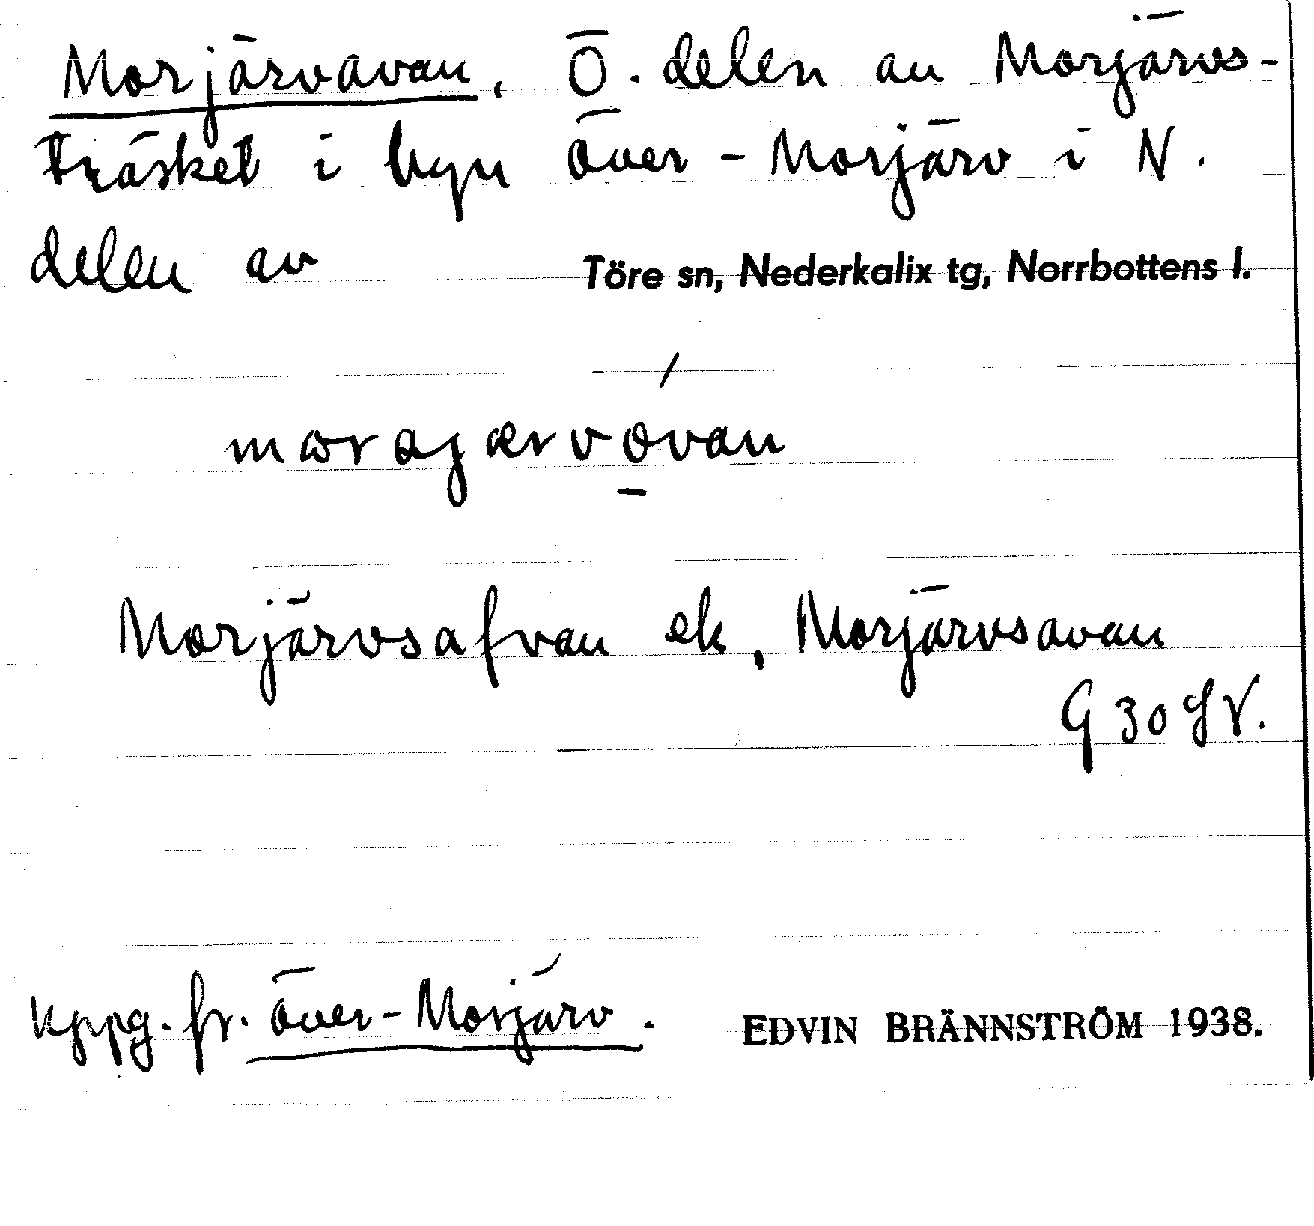 Morjärvavan, Ö. delen av Morjärvs-
träsket i byn Över-Morjärv i N.
delen av Töre sn, Nederkalix tg, Norrbottens l.
Morjärvsafvan ek, Morjärvsavan
G 30 SV.
Uppg. fr. Över-Morjärv.
EDVIN BRÄNNSTRÖM 1938.